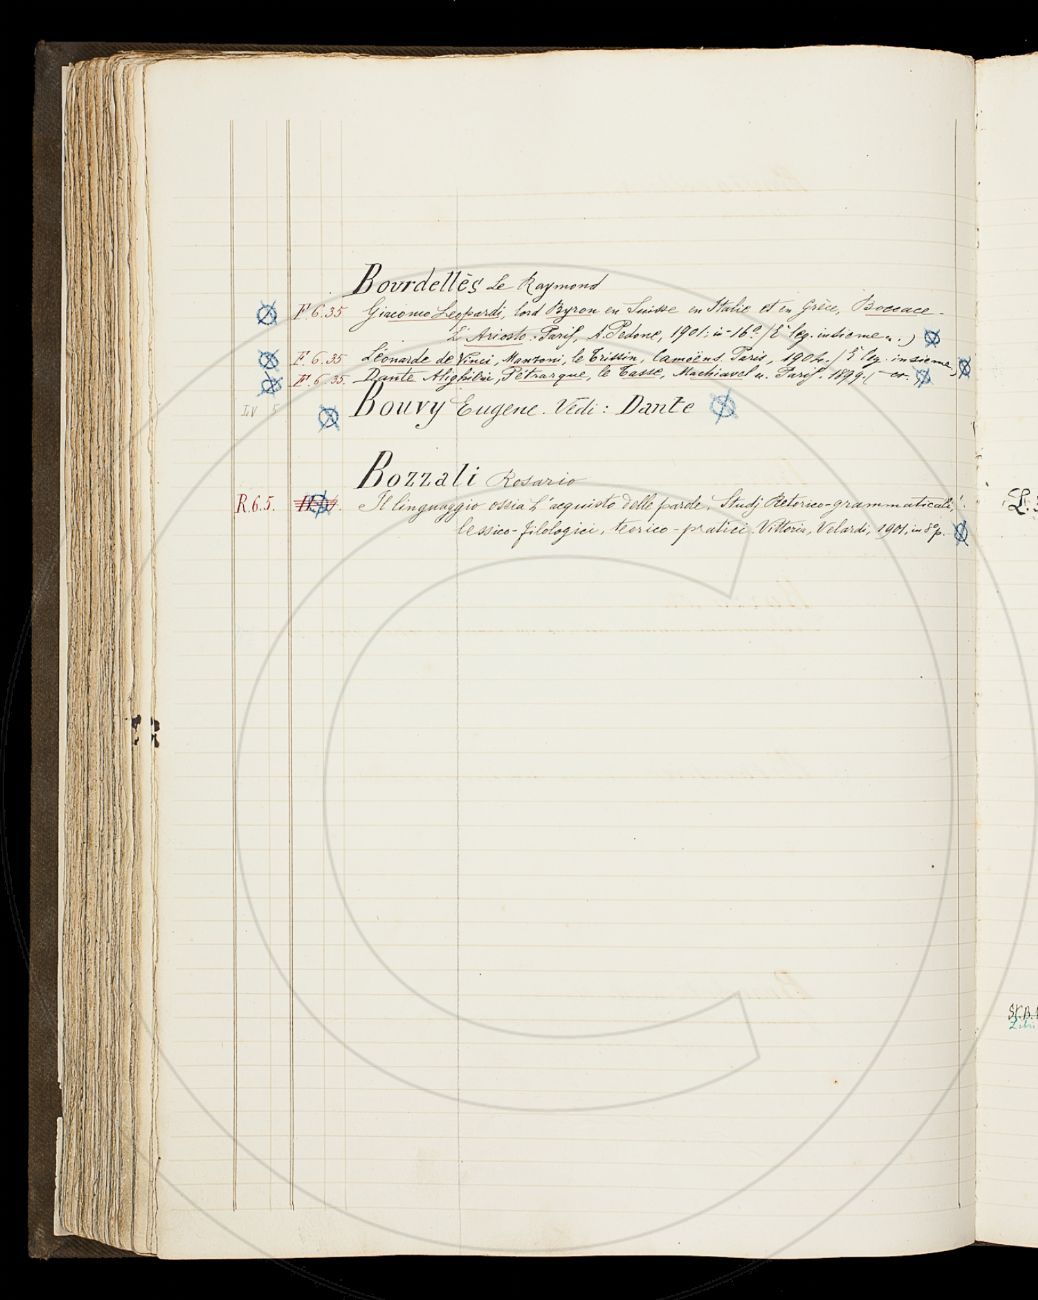 Bourdellès Le Raymond
F.6.35 Giacomo Leopardi, lord Byron en Suisse en Italie et en Grèce, Boccace -
L'Arioste. Paris, A. Pedone, 1901. in-16º. (E' leg. insieme a.)
F.6.35 Léonarde de Vinci, Manzoni, le Trissin, Camoëns. Paris, 1902. (E' leg. insieme
F.6.35. Dante Alighieri, Pétrarque, le Tasse, Machiavel. Paris. 1899.
Bouvy Eugene. Vedi: Dante
Bozzali Rosario
R.6.5. Il linguaggio ossia L'acquisto delle parole. Studj Retorico-grammaticali,
lessico-filologici, teorico-pratici. Vittoria, Velardi, 1901, in 8º p.
L.